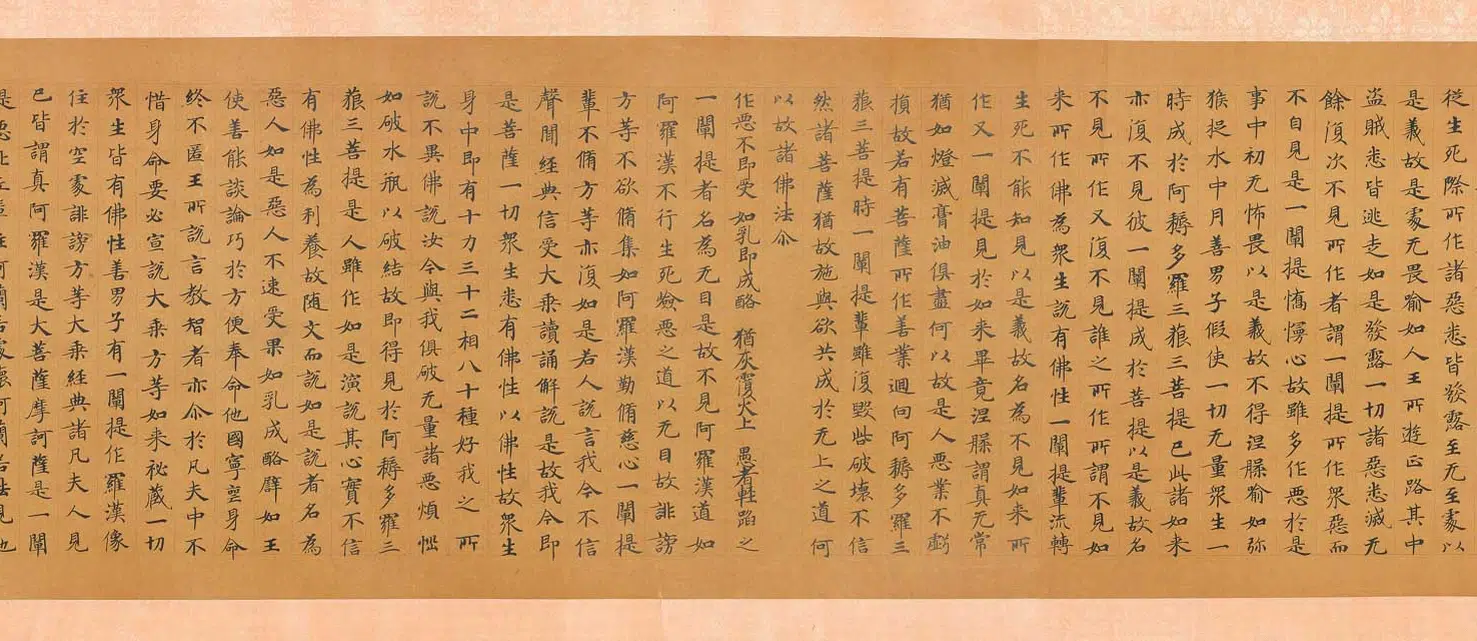 從生死際所作諸惡悉皆發露至无至處以
是義故是處无畏喻如人王所遊正路其中
盜賊悉皆逃走如是發露一切諸惡悉滅无
餘復次不見所作者謂一闡提所作衆惡而
不自見是一闡提憍慢心故雖多作惡於是
事中初无怖畏以是義故不得涅槃喻如弥
猴捉水中月善男子假使一切无量衆生一
時成於阿耨多羅三藐三菩提已此諸如来
亦復不見彼一闡提成於菩提以是義故名
不見所作又復不見誰之所作所謂不見如
来所作佛為衆生說有佛性一闡提輩流轉
生死不能知見以是義故名為不見如来所
作又一闡提見於如来畢竟涅槃謂真无常
猶如燈滅膏油俱盡何以故是人惡業不虧
損故若有菩薩所作善業迴向阿耨多羅三
藐三菩提時一闡提輩雖復毀呰破壞不信
然諸菩薩猶故施與欲共成於无上之道何
以故諸佛法尒
作惡不即受 如乳即成酪 猶灰覆火上 愚者輕蹈之
一闡提者名為无目是故不見阿羅漢道如
阿羅漢不行生死嶮惡之道以无目故誹謗
方等不欲脩集如阿羅漢勤脩慈心一闡提
輩不脩方等亦復如是若人說言我今不信
聲聞經典信受大乘讀誦解說是故我今即
是菩薩一切衆生悉有佛性以佛性故衆生
身中即有十力三十二相八十種好我之所
說不異佛說汝今與我俱破无量諸惡煩惱
如破水瓶以破結故即得見於阿耨多羅三
藐三菩提是人雖作如是演說其心實不信
有佛性為利養故随文而說如是說者名為
惡人如是惡人不速受果如乳成酪譬如王
使善能談論巧於方便奉命他國寧喪身命
終不匿王所說言教智者亦尒於凡夫中不
惜身命要必宣說大乘方等如来祕藏一切
衆生皆有佛性善男子有一闡提作羅漢像
住於空處誹謗方等大乘經典諸凡夫人見
已皆謂真阿羅漢是大菩薩摩訶薩是一闡